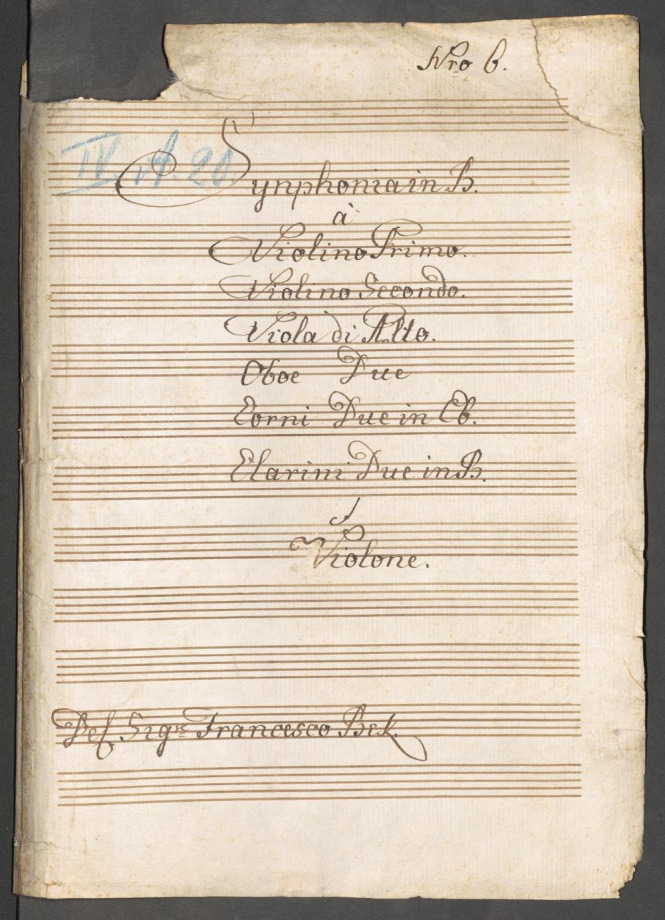 Nro 6.
IV. A. 20
Synphonia in B.
à
Violino Primo.
Violino Secondo.
Viola di Alto.
Oboe Due
Corni Due in Eb.
Clarini Due in B.
Violone.
Del Sigre Francesco Bek.